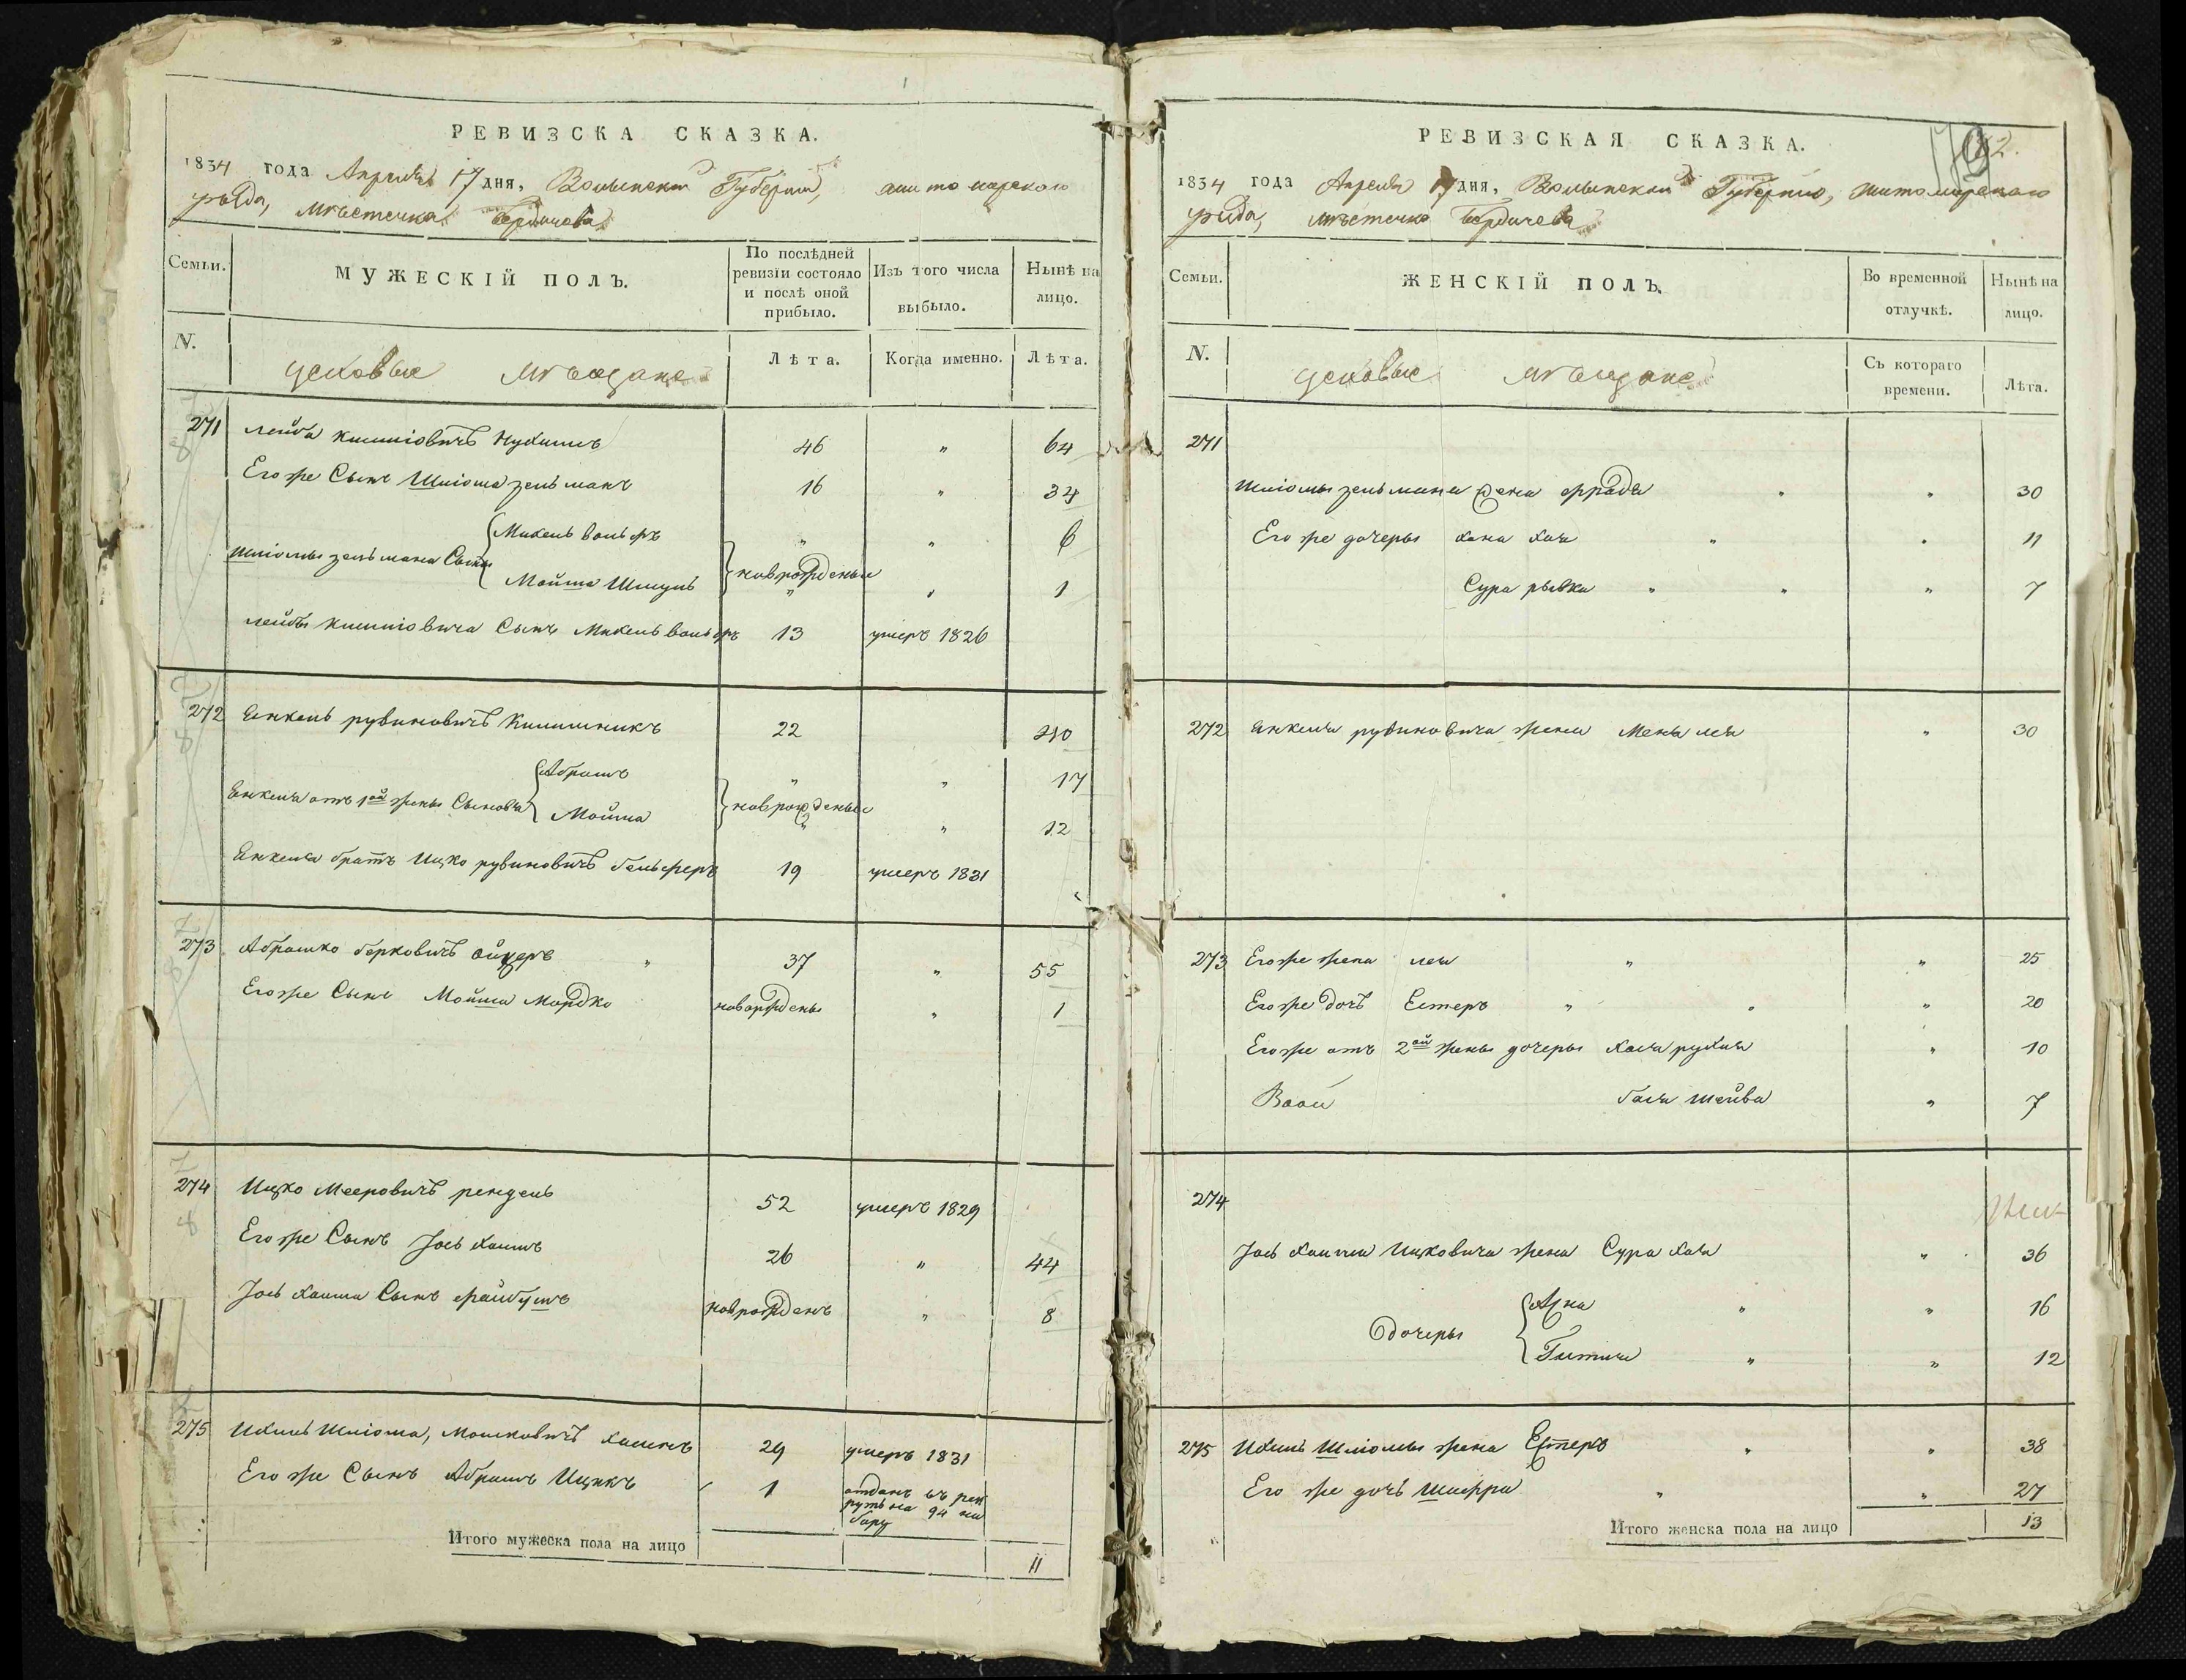 РЕВИЗСКА СКАЗКА.
1834 года Апреля 17 дня, Волынской Губернии, житомирского
уезда, местечка Бердичева
Семьи.
МУЖЕСКІЙ ПОЛЪ.
По послѣдней ревизіи состояло и послѣ оной прибыло.
Изъ того числа выбыло.
Нынѣ на лицо.
N.
цеховые мѣщане
Лѣта.
Когда именно.
Лѣта.
271 лейба Кишиіовичъ 46 " 64
Егоже Сынъ Шліома зельманъ 16 " 34
Шліомы зельмана Сыны
Михель вольфъ " " 6
новрожденые
Мойша Шмуль " " 1
лейбы Кишиіовича Сынъ Михель вольфъ 13 умеръ 1826
272 Янкель рувиновичъ Килимникъ 22 40
Янкеля отъ 1ой жены Сыновья
Абрамъ " " 17
новрожденые
Мойша " " 12
Янкеля братъ Ицко рувиновичъ 19 умеръ 1831
273 Абрамко берковичъ ойзеръ " 37 " 55
Егоже Сынъ Мойша Мордко " новорждены " 1
274 Ицко Мееровичъ рендель 52 умеръ 1829
Егоже Сынъ Іось хаимъ 26 " 44
Іось хаима Сынъ файбушъ новрожденъ " 8
275 Ихиль Шліома, Мошковичъ 29 умеръ 1831
Его же Сынъ Абрамъ Ицикъ 1 отданъ въ рек
руты на 94 на
бору
Итого мужеска пола на лицо 11
РЕВИЗСКАЯ СКАЗКА.
1834 года Апреля 17 дня, Волынской Губернио, житомирского
уезда, местечка Бердичева
Семьи.
ЖЕНСКІЙ ПОЛЪ.
Во временной отлучкѣ.
Нынѣ на лицо.
N.
цеховые мѣщане
Съ котораго времени.
Лѣта.
271
Шліомы зельмана жена фрада " " 30
Его же дочеры хана хая " " 11
Сура рывка " " " 7
272 Янкеля рувиновича жена Меня лея " 30
273 Егоже жена лея " " 25
Егоже дочъ Естеръ " " " 20
Егоже отъ 2ой жены дочеры хая рухля " 10
бася шейва " 7
274
Іось хаима Ицковича жена Сура хая " 36
дочеры
" " 16
Гитля " " 12
275 Ихиль Шліомы жена Естеръ " " 38
Его же дочъ Шифра " " 27
Итого женска пола на лицо 13